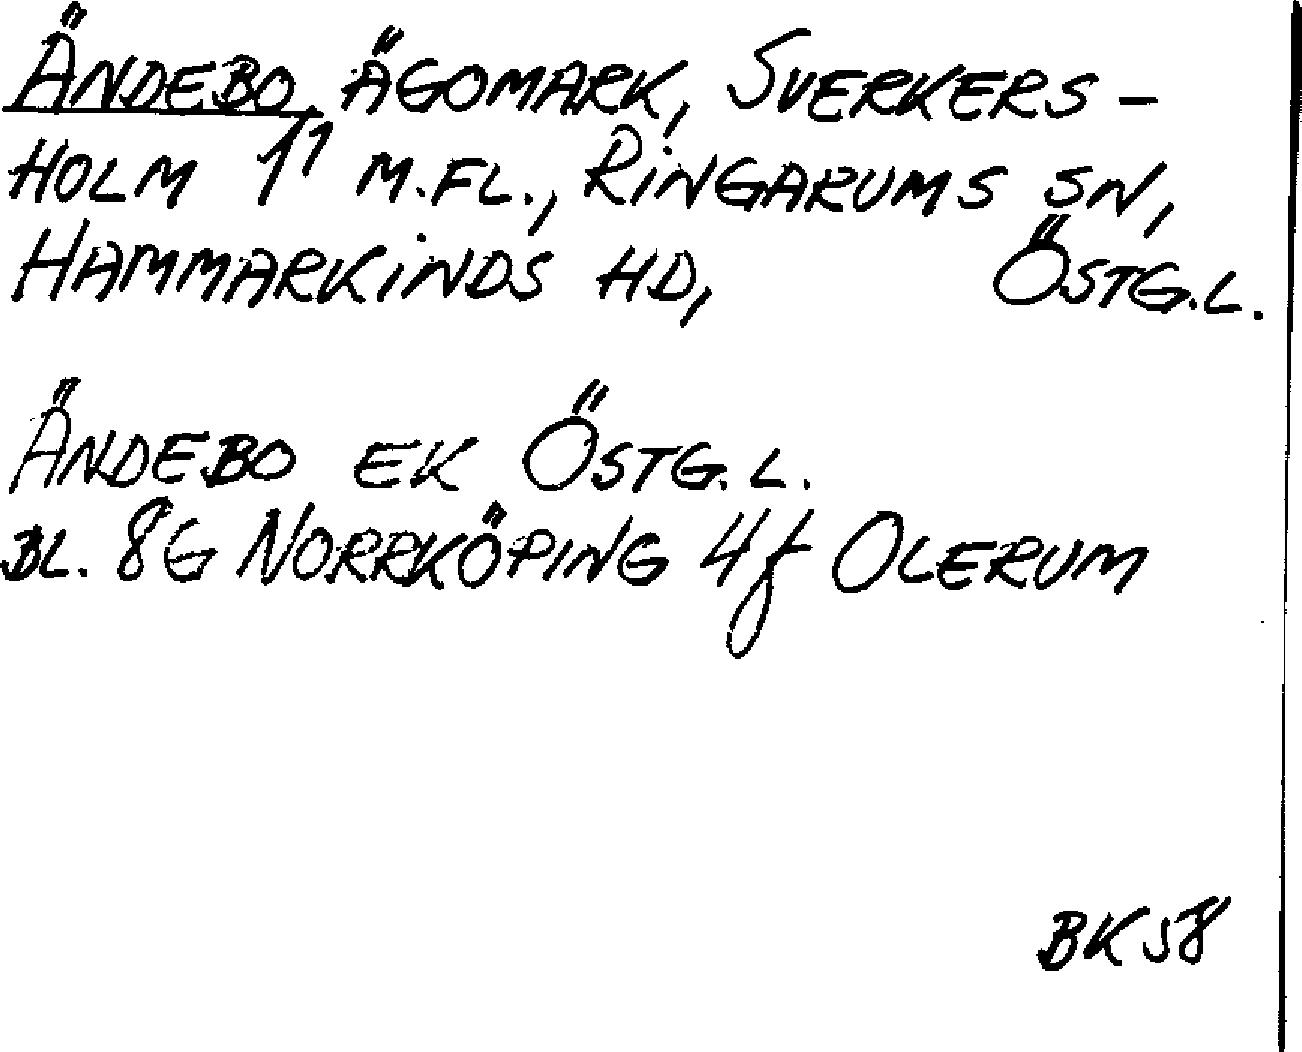 ÄNDEBO, ÄGOMARK, SVERKERS-
HOLM 1¹ M.FL., RINGARUMS SN,
HAMMARKINDS HD, ÖSTG.L.
ÄNDEBO EK ÖSTG.L.
BL. 8G NORRKÖPING 4f OLERUM
BK 58